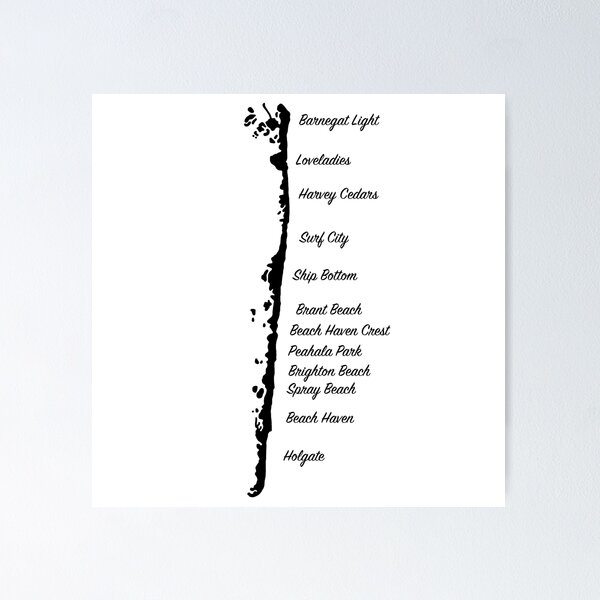 Barnegat Light
Loveladies
Harvey Cedars
Surf City
Ship Bottom
Brant Beach
Beach Haven Crest
Peahala Park
Brighton Beach
Spray Beach
Beach Haven
Holgate